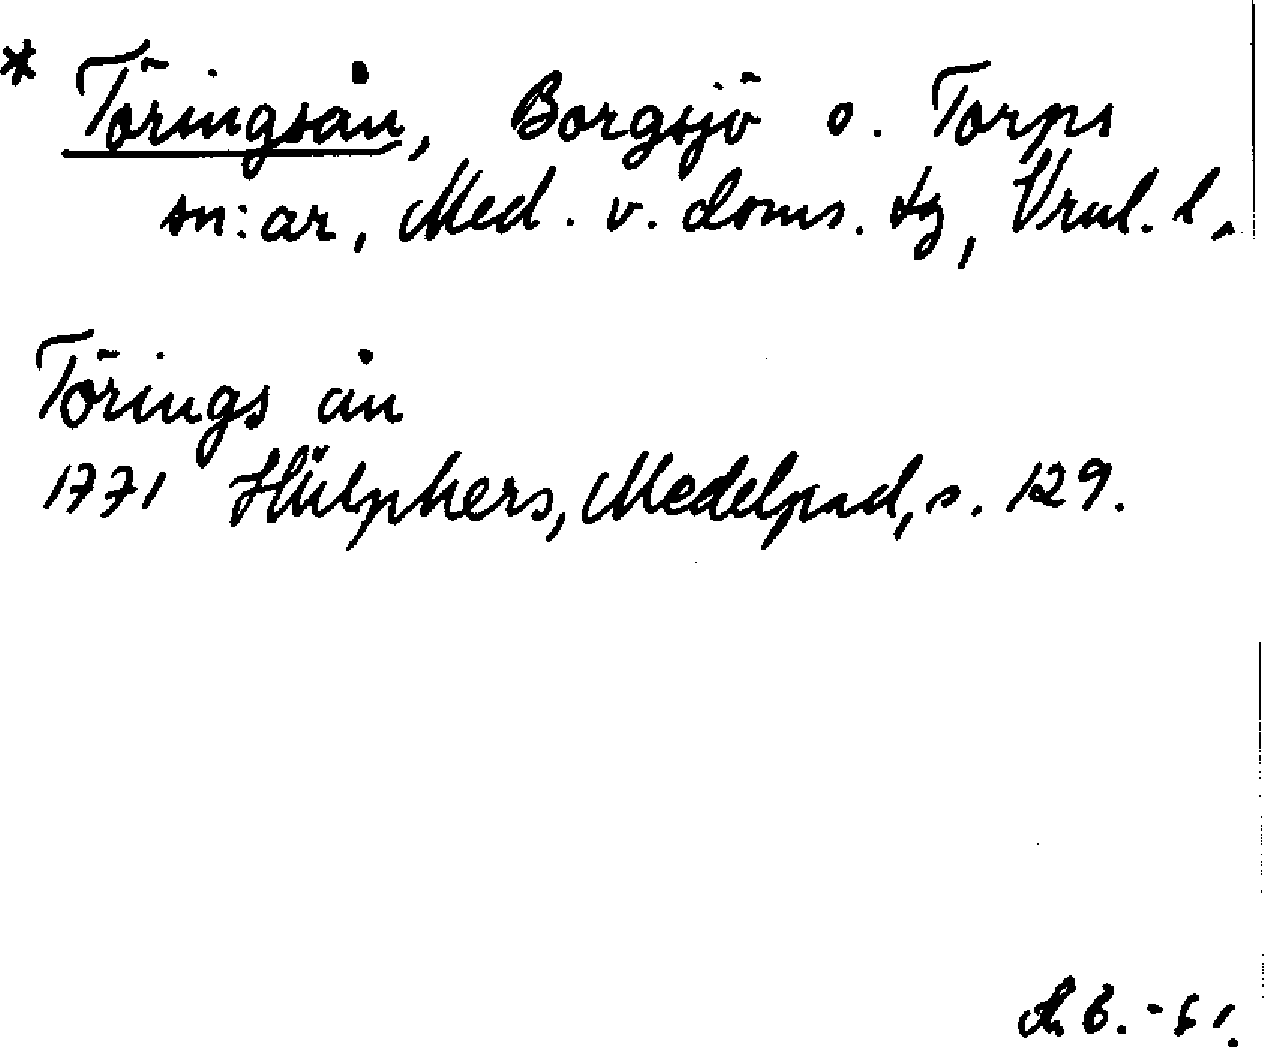 * Töringsån, Borgsjö o. Torps
sn:ar, Med. v. doms. tg, Vrnl. l.
Törings ån
1771 Hülphers, Medelpad, s. 129.
B. -61.